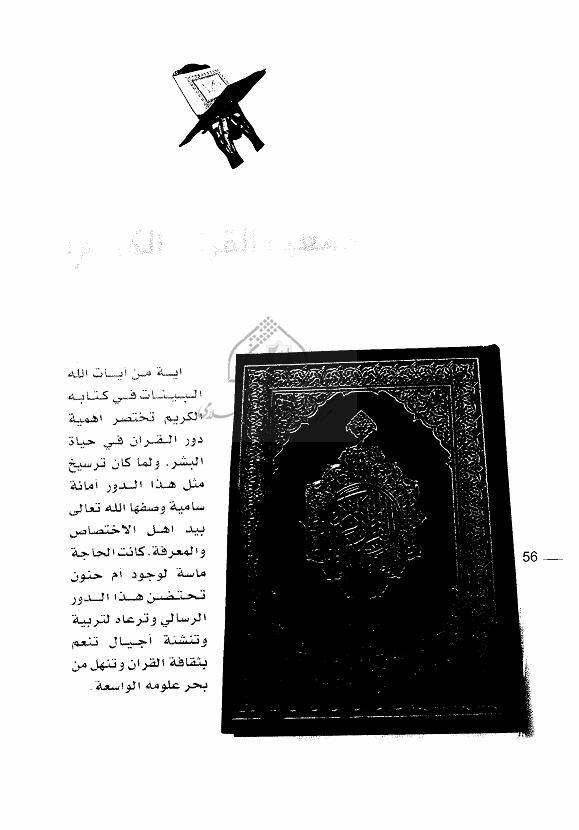 جمعية القرآن الكريم
اية من ايات الله
البينات في كتابه
الكريم تختصر اهمية
دور القران في حياة
البشر. ولما كان ترسيخ
مثل هذا الدور أمانة
سامية وصفها الله تعالى
بيد اهل الاختصاص
والمعرفة.كانت الحاجة
ماسة لوجود أم حنون
تحتضن هذا الدور
الرسالي وترعاه لتربية
وتنشئة أجيال تنعم
بثقافة القران وتنهل من
بحر علومه الواسعة.
56